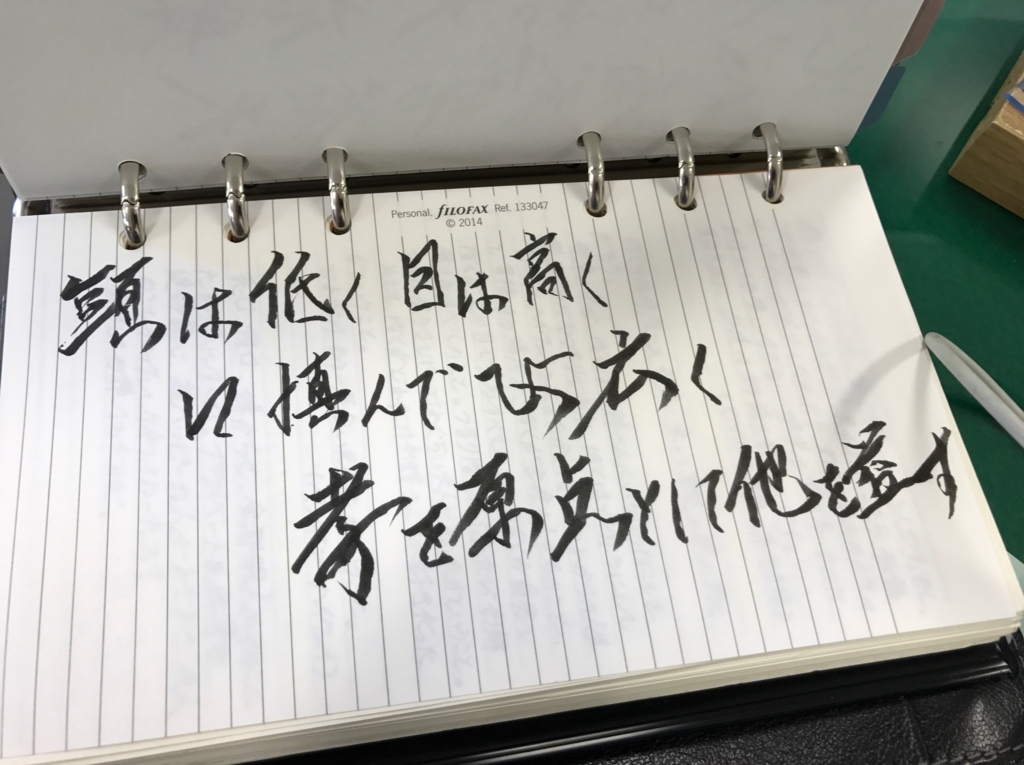 Personal. FILOFAX Ref. 133047
© 2014
頭は低く 目は高く
口慎んで心広く
孝を原点として他を益す